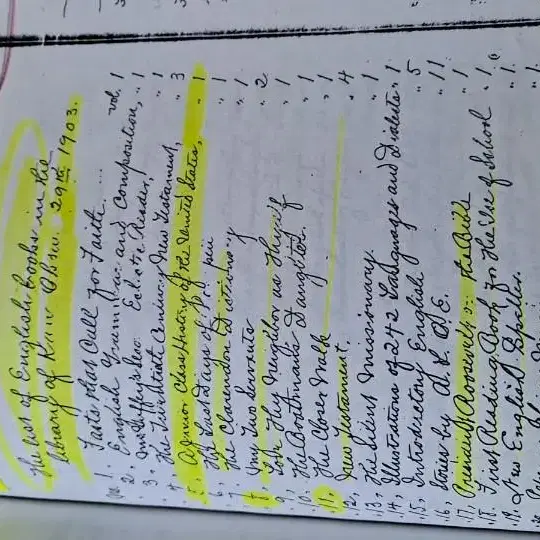 The list of English books in the
library of Kaw Ohsur 29th 1903.
No. 1. Facts that Call for Faith.... vol. 1
" 2. English Grammar and Composition, " 1
" 3. McGuffey's New Eclectic Reader, " 1
" 4. The Twentieth Century New Testament, " 3
" 5. A Junior Class History of the United States, " 1
" 6. Last Days of " 1
" 7. The Clarendon Dictionary " 1
" 8. My Two Servants " 2
" 9. Love Thy Neighbor as Thyself " 1
" 10. The Boatman's Daughter. " 1
" 11. The Closer Walk " 1
" 12. New Testament, " 4
" 13. The Silent Missionary. " 1
" 14. Illustrations of 242 Languages and Dialects " 1
" 15. Introductory English " 5
" 16. Stories by A. L. O. E. " 11
" 17. President Roosevelt on the Bible " 1
" 18. First Reading Book for the Use of School " 1
" 19. New English Speller. " 1